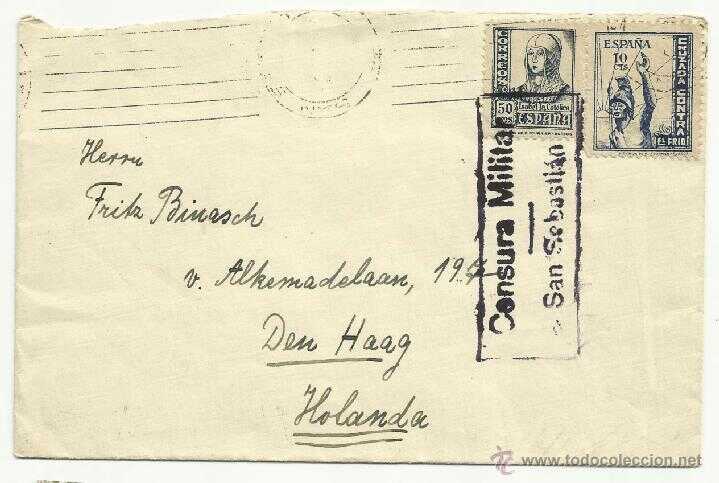 CORREOS
50 CTS
Isabel la Católica
ESPAÑA
ESPAÑA
10
CTS
CRUZADA CONTRA
EL FRIO
Censura Militar
San Sebastián
Herrn
Fritz Binasch
v. Alkemadelaan, 197
Den Haag
Holanda
www.todocoleccion.net